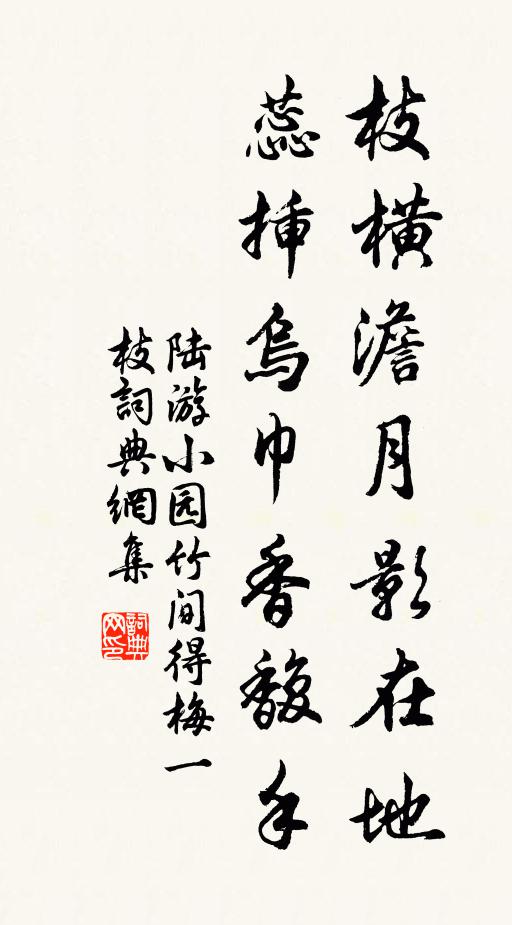 枝橫澹月影在地
蕊插烏巾香馥手
陆游小园竹间得梅一
枝詞典網集
詞典
网印